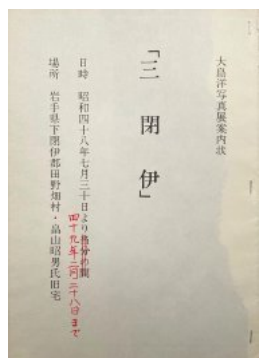 大島洋写真展案内状
「三閉伊」
日時 昭和四十八年七月三十日より当分の間
四十九年二月二十八日まで
場所 岩手県下閉伊郡田野畑村・畠山昭男氏旧宅